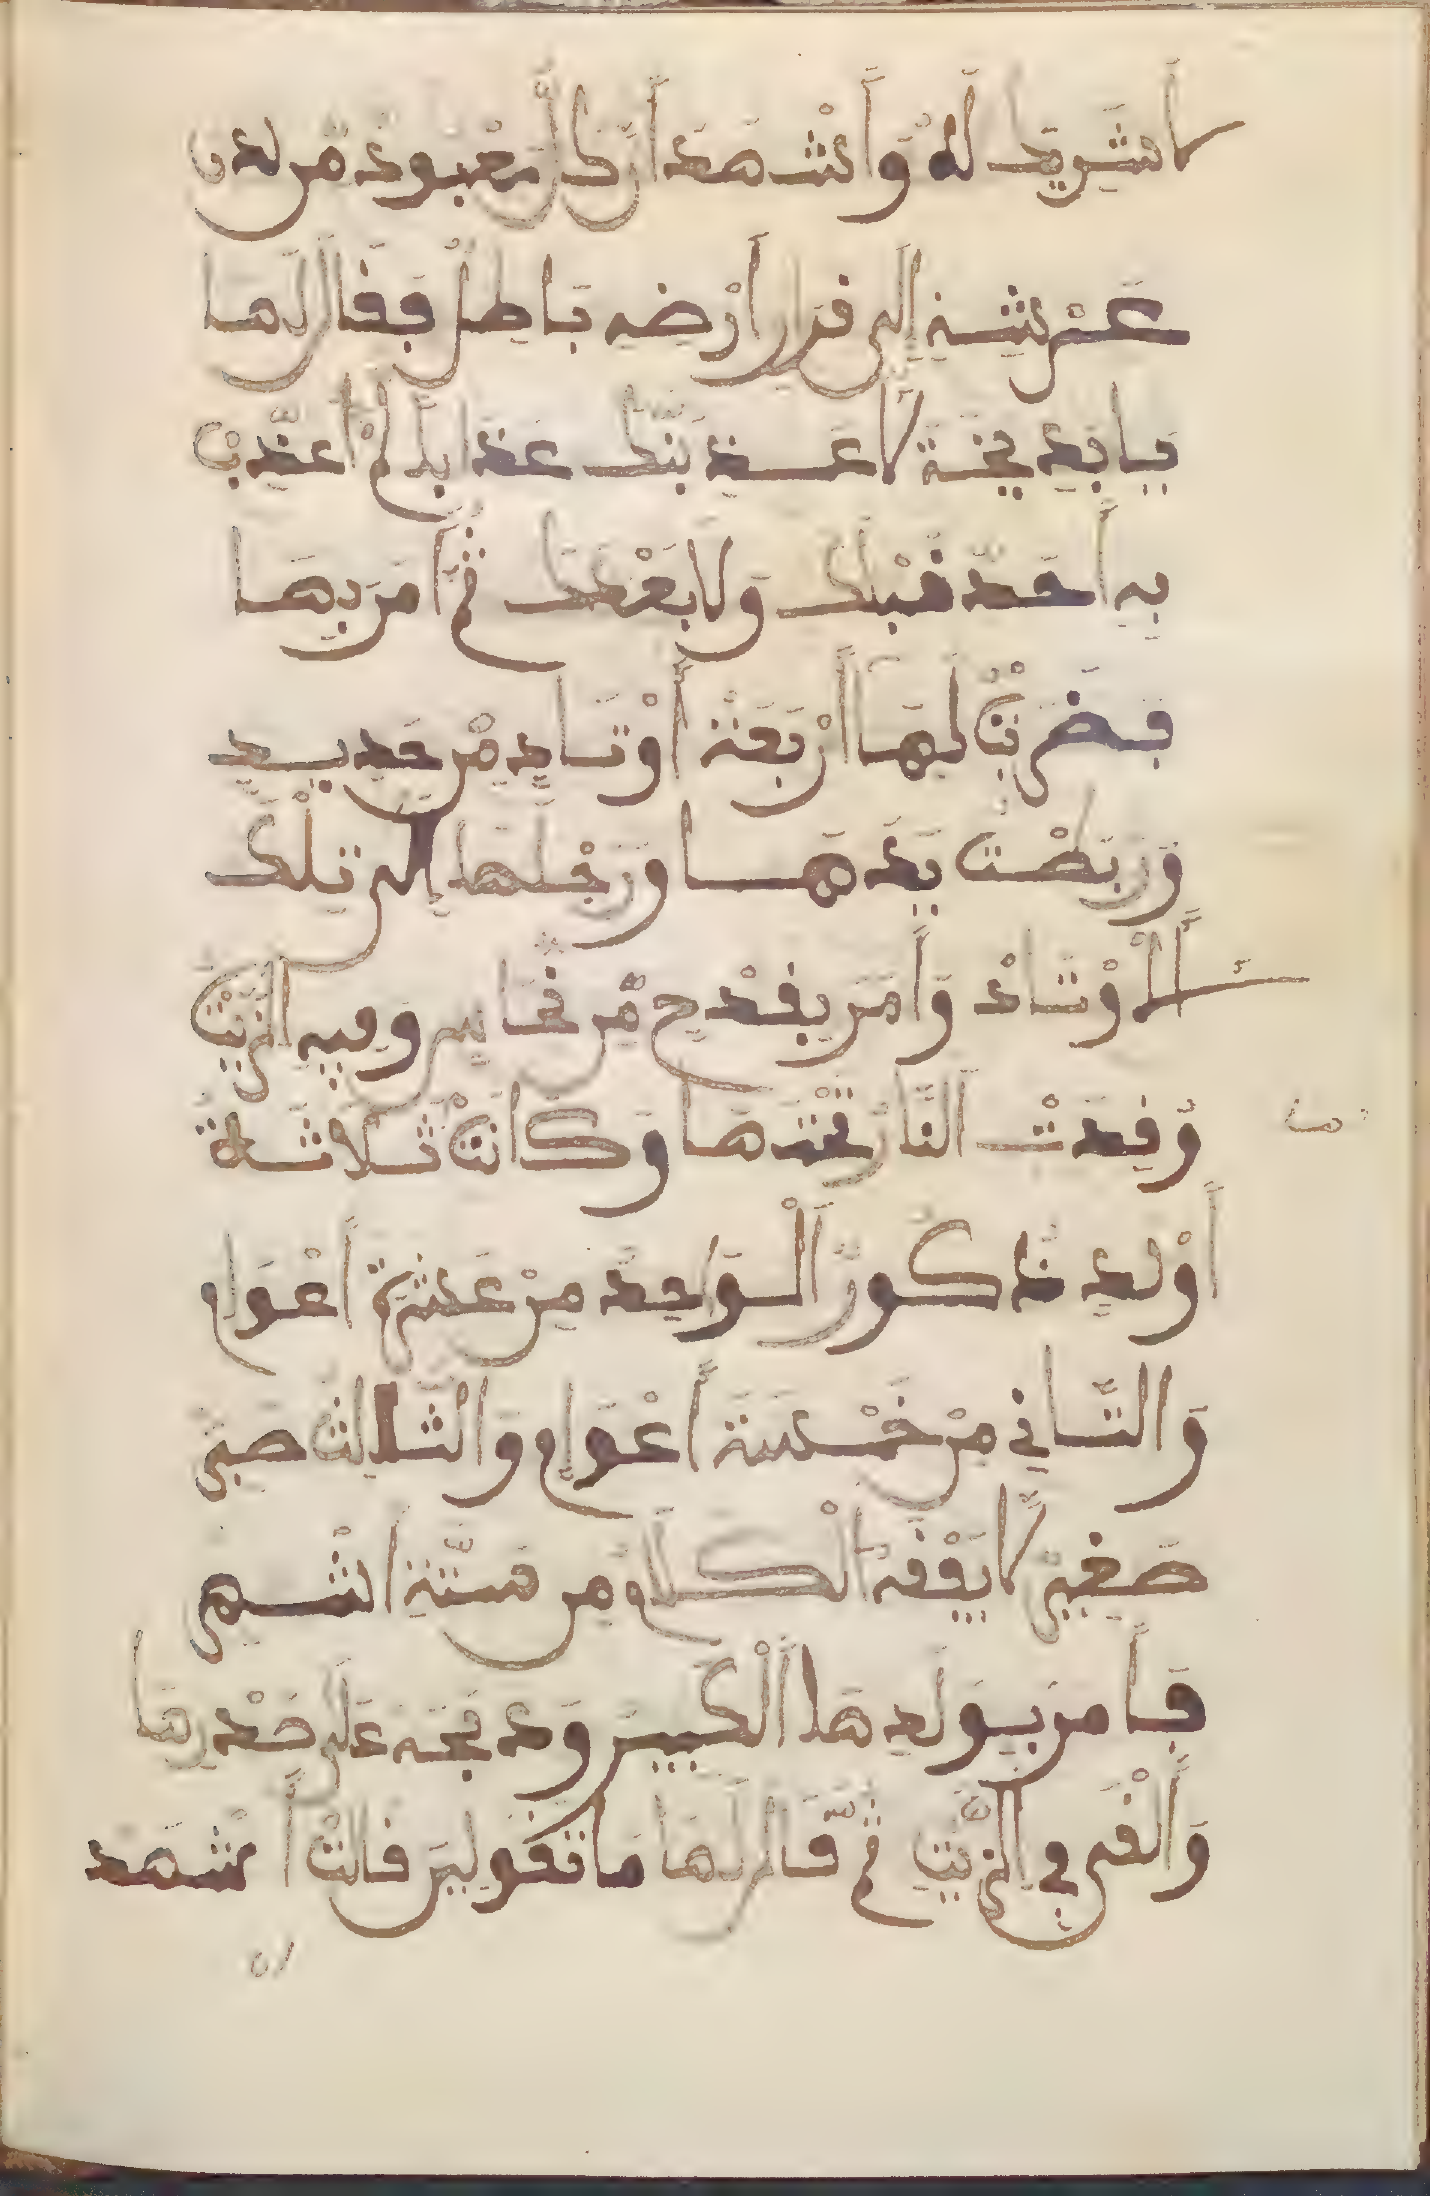 لا شريك له وأشهد أن كل معبود من لدن
عرشه إلى قرار أرضه باطل فقال لها
يا بديخة لا عذبنك عذابا لم أعذب
به أحد قبلك ولا بعدك ثم أمر بها
فضربت لها أربعة أوتاد من حديد
وربطت يدها ورجلها إلى تلك
الأوتاد وأمر بقدح من نحاس وفيه الزيت
وقدت النار تحتها وكانت ثلاثة
أولد ذكور الواحد من عشرة أعوام
والثاني من خمسة أعوام والثالث صبي
صغير لا يفقه الكلام من ستة اشهر
فأمر بولدها الكبير ودبحه على صدرها
وألقى في الزيت ثم قال لها ما تقولين قالت أشهد